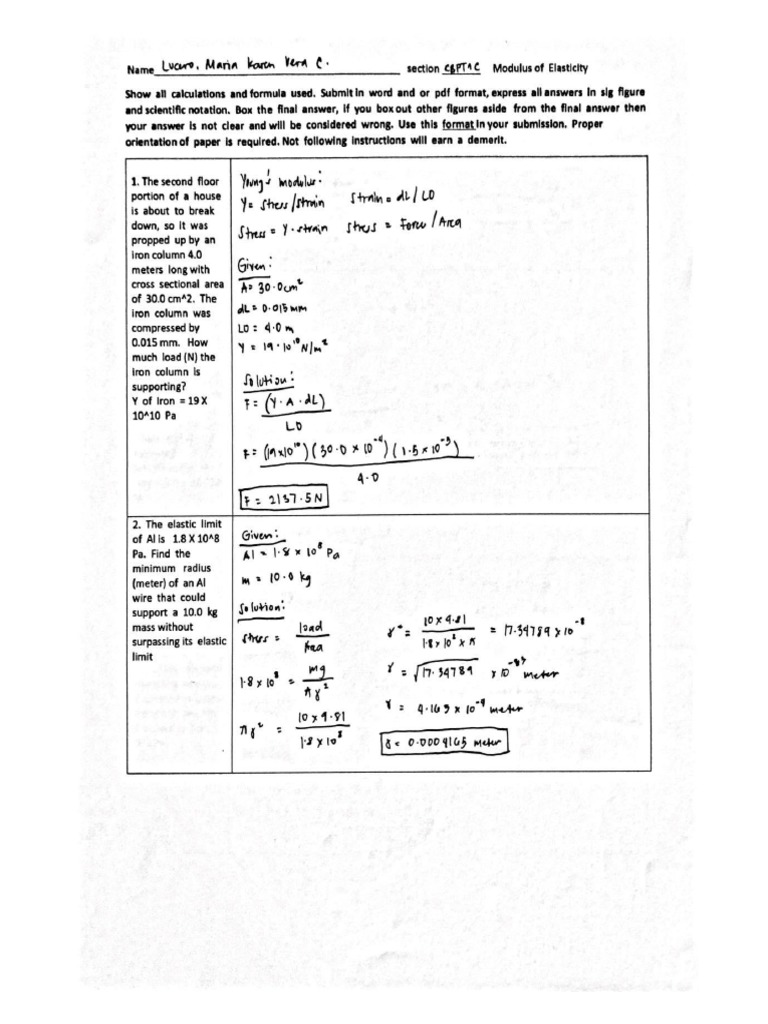 Name Lucero, Maria Karen Vera C. section CBPT1C Modulus of Elasticity
Show all calculations and formula used. Submit in word and or pdf format, express all answers in sig figure
and scientific notation. Box the final answer, if you box out other figures aside from the final answer then
your answer is not clear and will be considered wrong. Use this format in your submission. Proper
orientation of paper is required. Not following instructions will earn a demerit.
1. The second floor
portion of a house
is about to break
down, so it was
propped up by an
iron column 4.0
meters long with
cross sectional area
of 30.0 cm^2. The
iron column was
compressed by
0.015 mm. How
much load (N) the
iron column is
supporting?
Y of Iron = 19 X
10^10 Pa
Young's modulus:
Y = Stress/Strain Strain = dL / LO
Stress = Y · strain Stress = Force / Area
Given:
A = 30.0cm²
dL = 0.015 mm
LO = 4.0 m
Y = 19 · 10¹⁰ N/m²
Solution:
F = (Y · A · dL)
LO
F = (19x10¹⁰)(30.0 x 10⁻⁴)(1.5 x 10⁻⁵)
4.0
F = 2137.5 N
2. The elastic limit
of Al is 1.8 X 10^8
Pa. Find the
minimum radius
(meter) of an Al
wire that could
support a 10.0 kg
mass without
surpassing its elastic
limit
Given:
Al = 1.8 x 10⁸ Pa
m = 10.0 kg
Solution:
stress = load
Area
1.8 x 10⁸ = mg
πr²
πr² = 10 x 9.81
1.8 x 10⁸
10 x 9.81
= 17.34789 x 10⁻⁸
1.8 x 10⁸ x π
r = √17.34789
meter
r = 4.165 x 10⁻⁴ meter
r = 0.0004165 meter